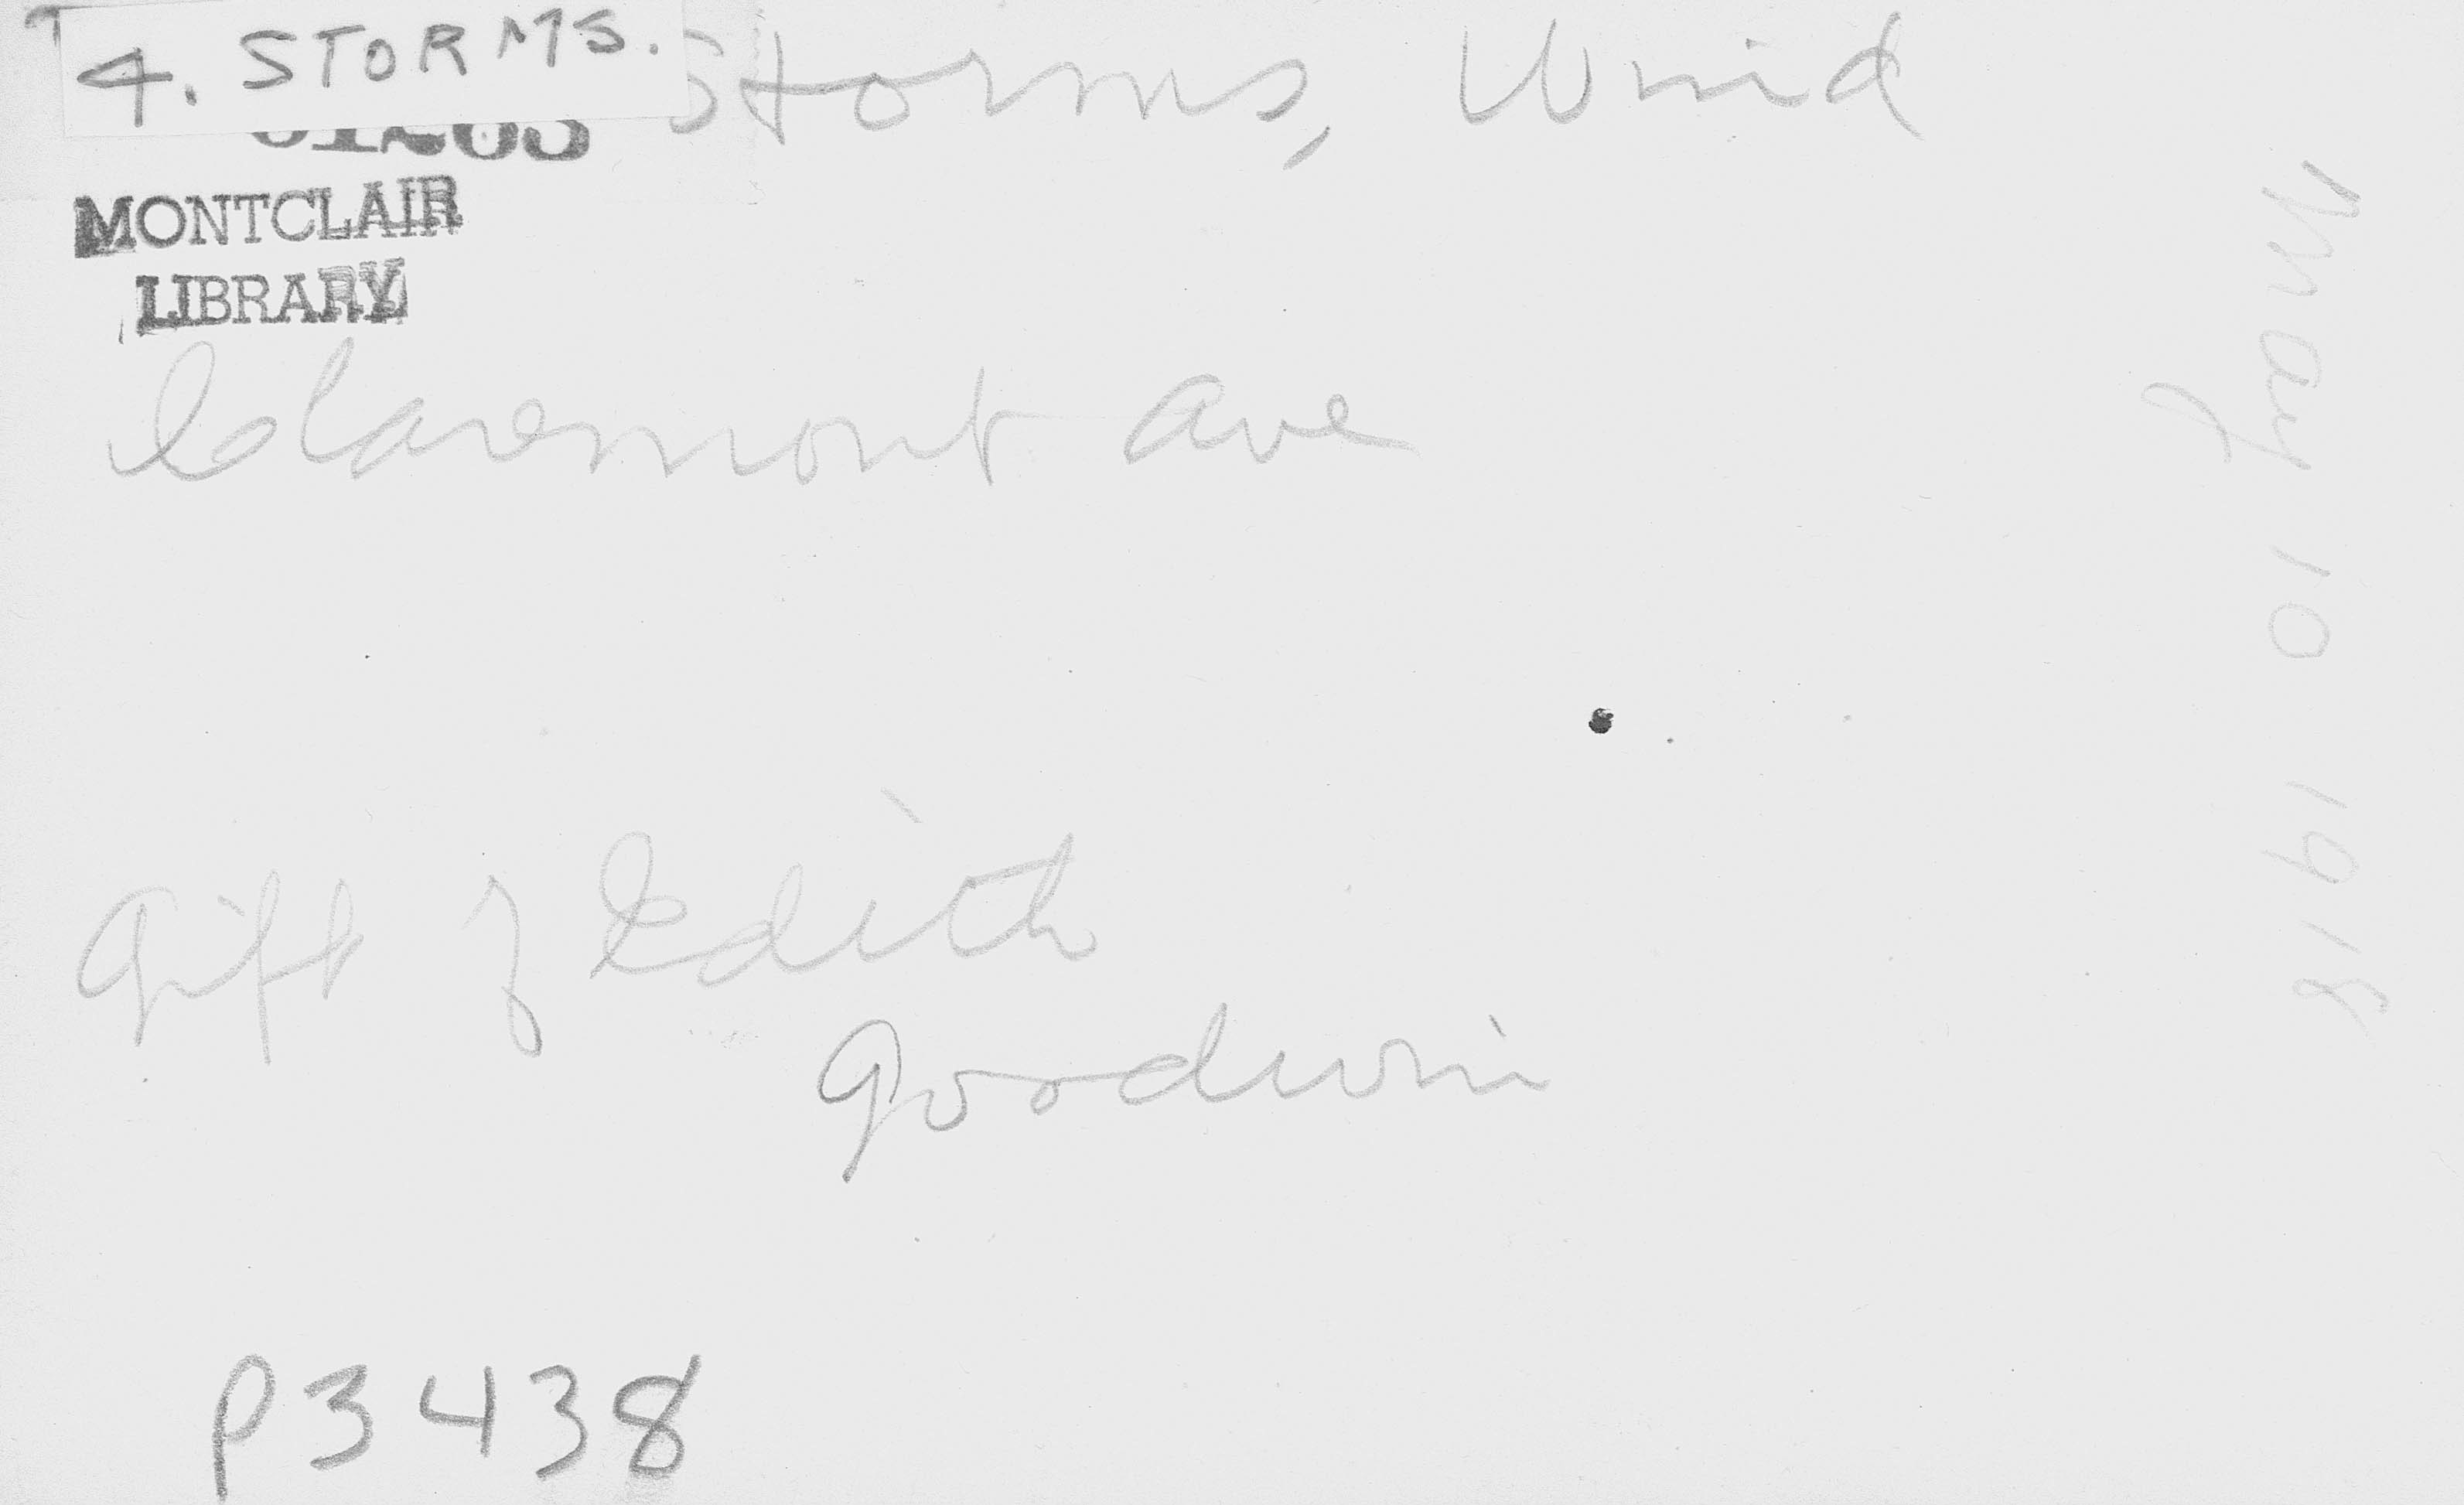 4. STORMS.
Storms, Wind
MONTCLAIR
LIBRARY
Claremont Ave
Gift of Edith
Goodwin
P3438
May 10 1918